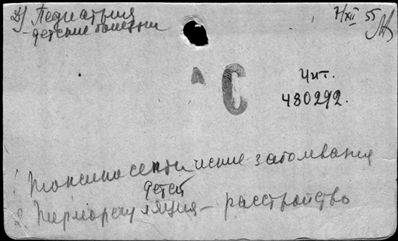 2) Педиатрия
- детские болезни
7/XII 55
С
Чит.
480292.
1 Токсикосептические заболевания
детей
2 Терморегуляция - расстройство